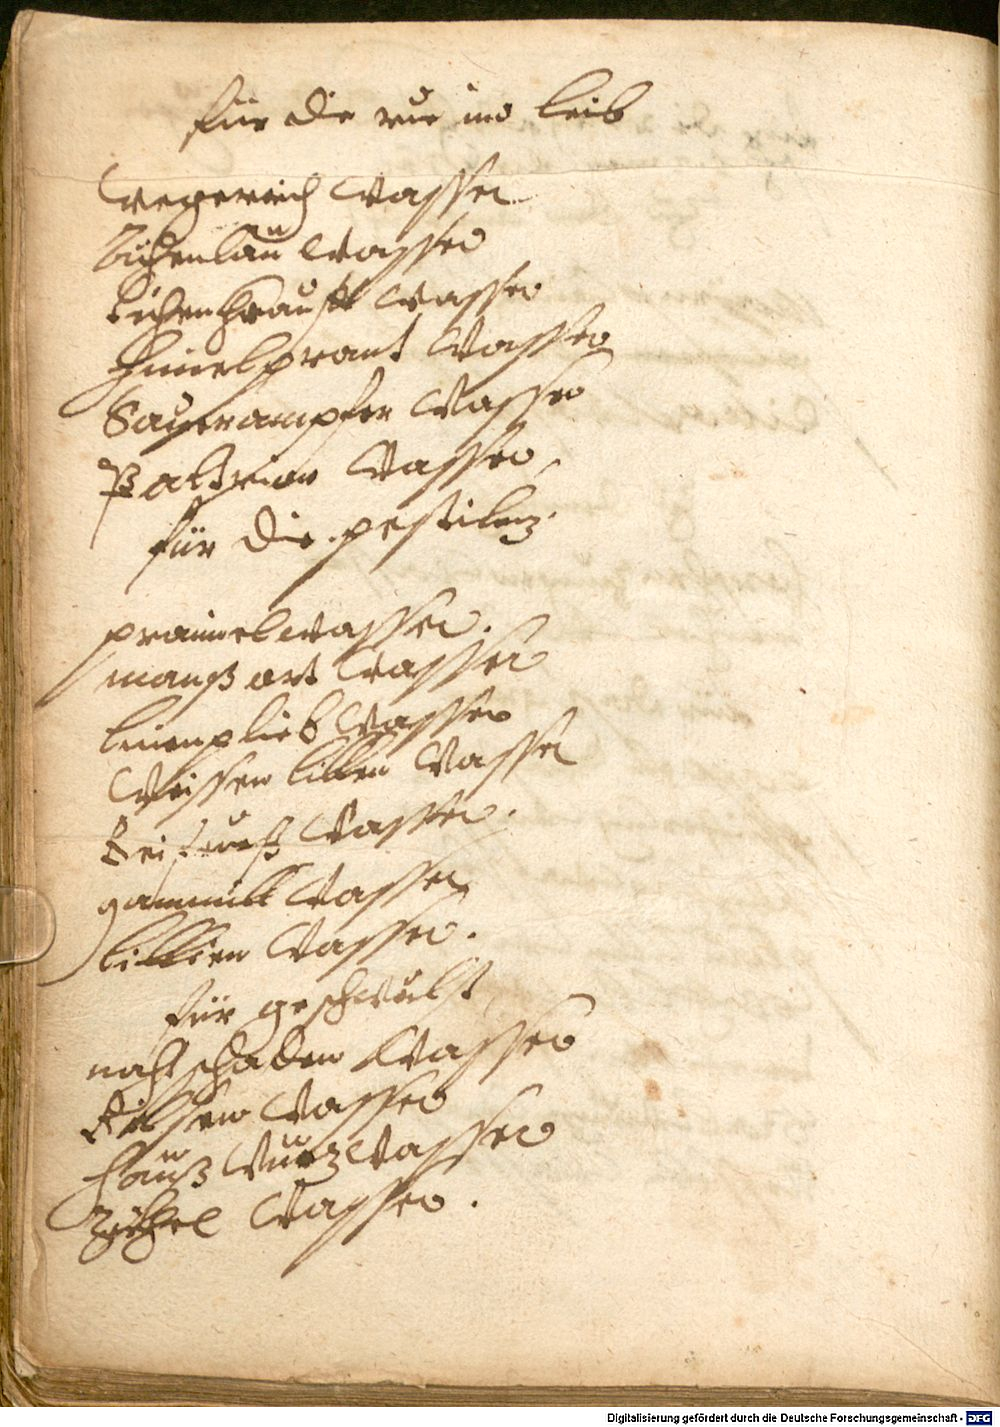 für die rur im leib
Wegereich Wasser
Aichenlau Wasser
Eichen Wasser
Himelprant Wasser
Saŭerampfer Wasser
Paldrian Wasser
für die pestilenz
praunnelwasser.
maußort Wasser
Wasser
Weissen lilien Wasser
Beifues Wasser.
Wasser
lillien Wasser.
für geschwulst
nachtschaden Wasser
Bilsen Wasser
Hauß Wurz Wasser
Wasser.
Digitalisierung gefördert durch die Deutsche Forschungsgemeinschaft - DFG